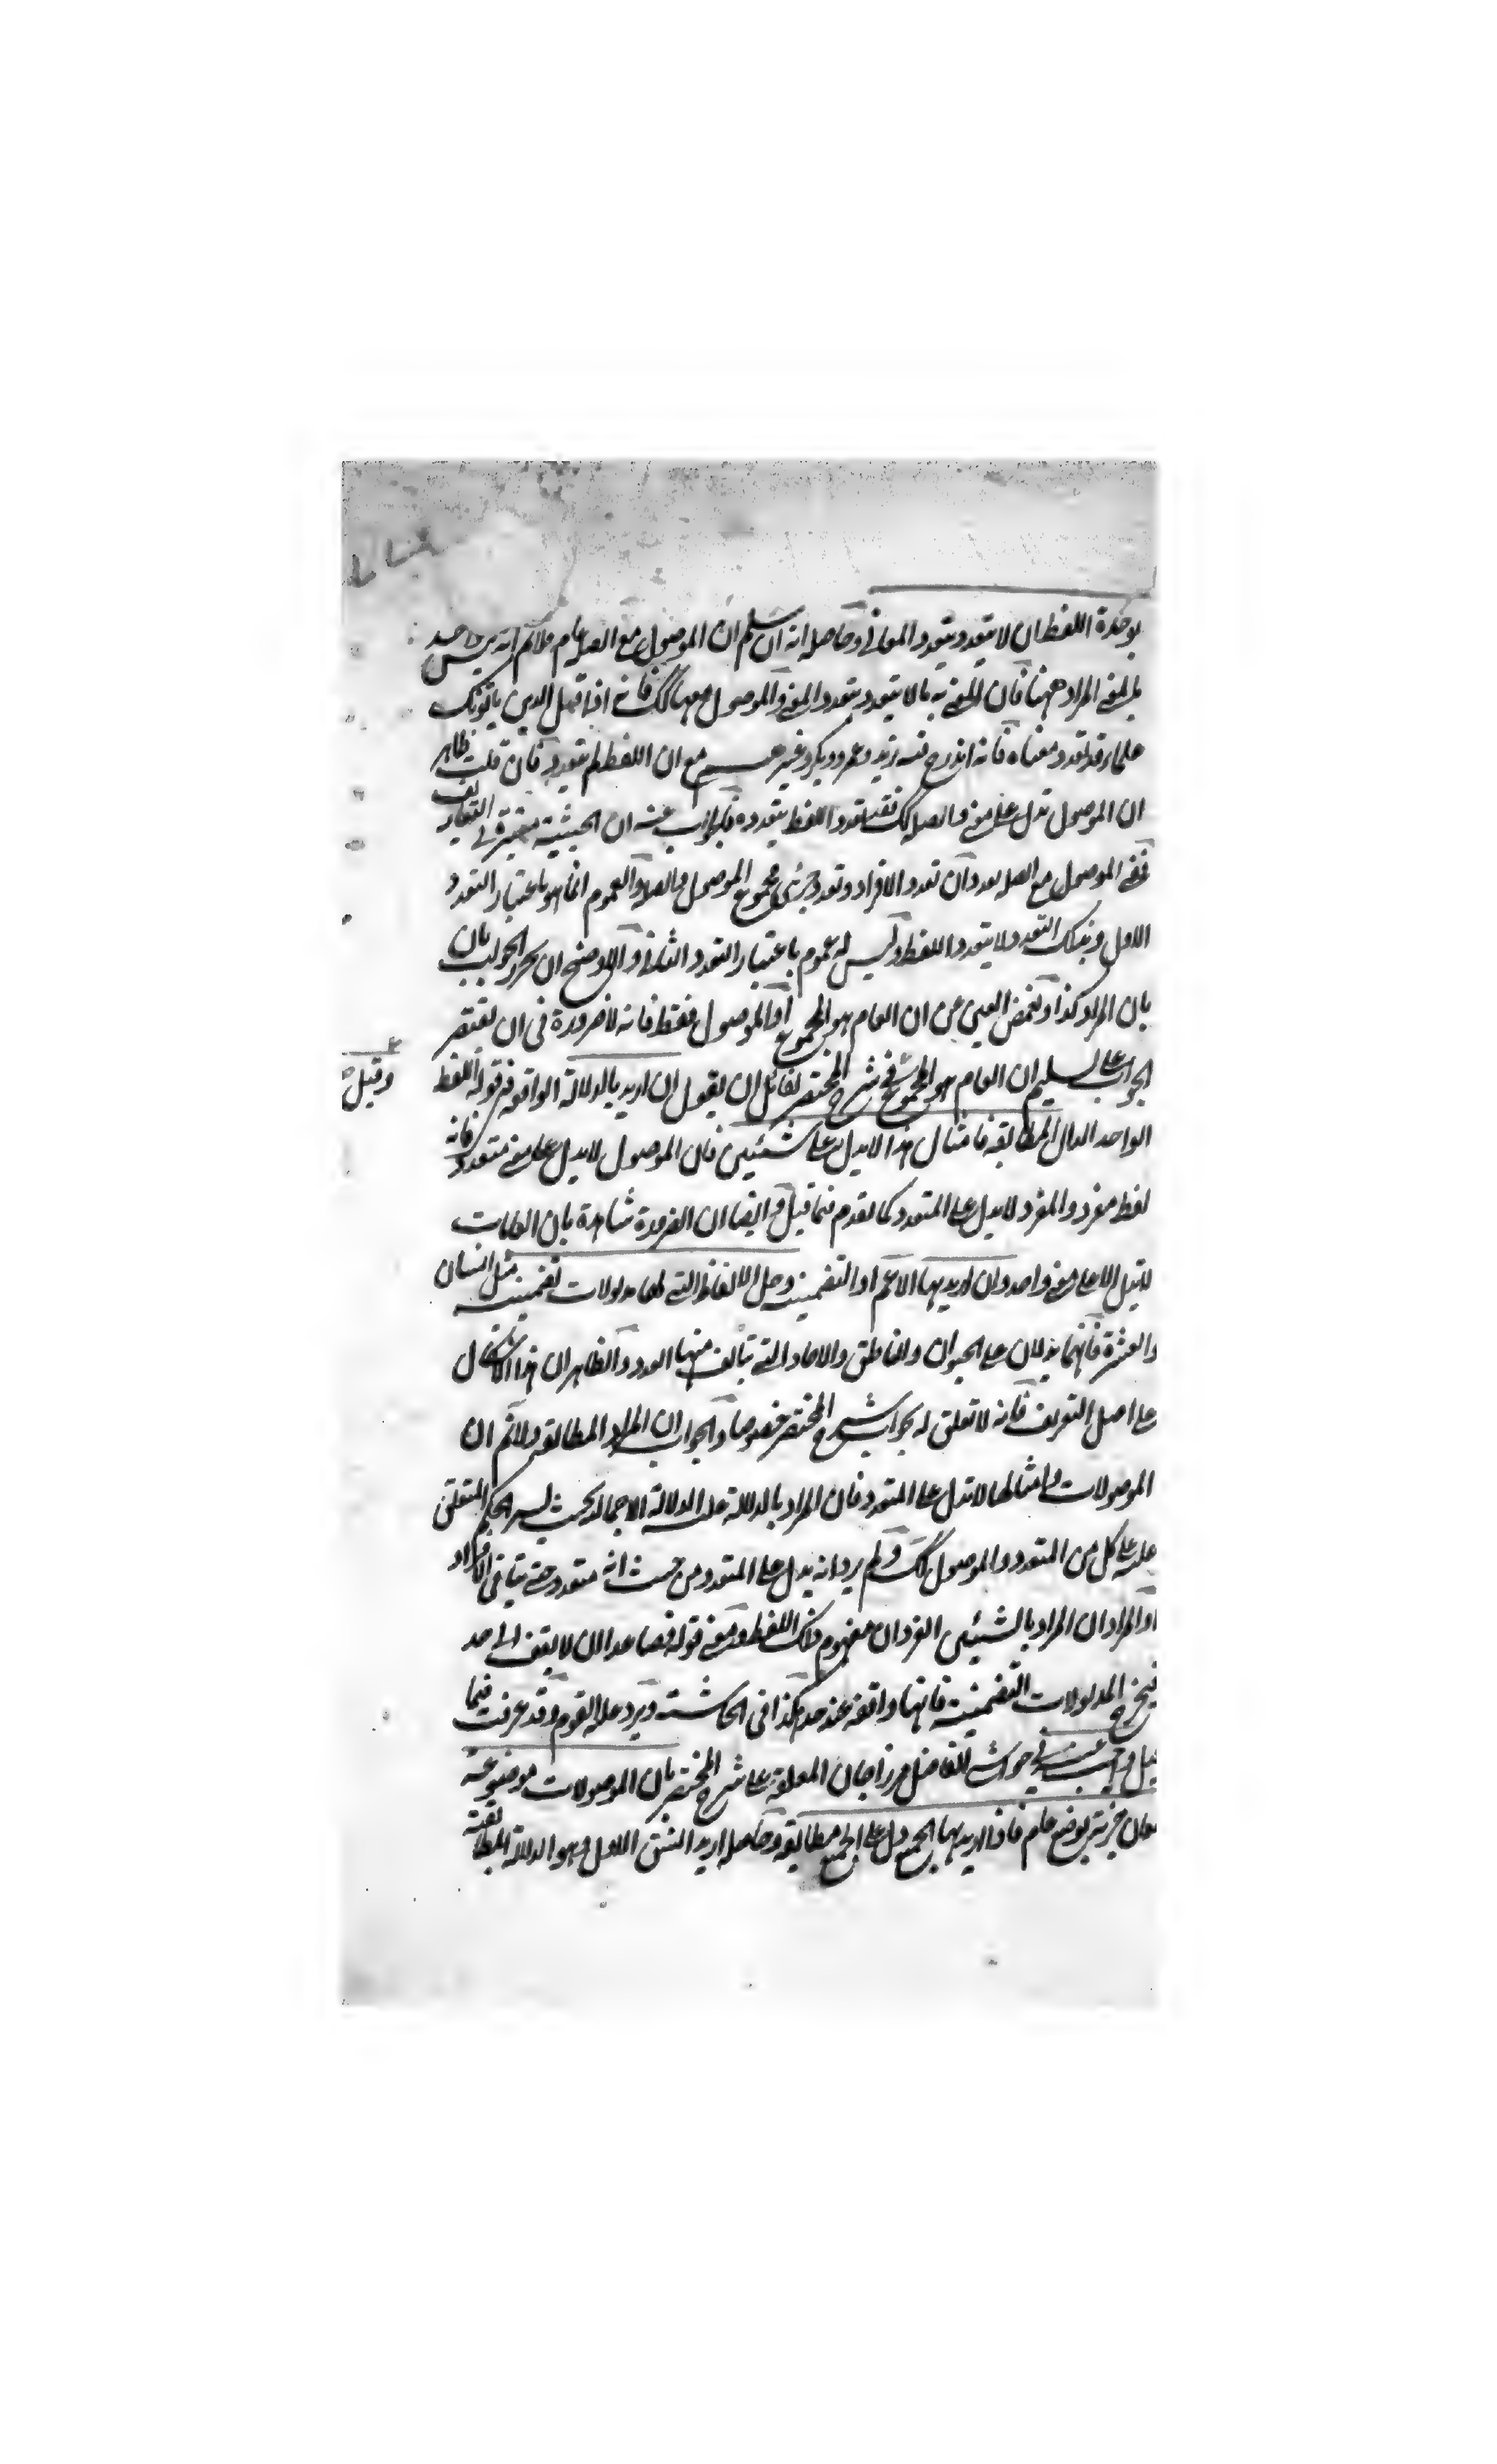 بوحدة اللفظ ان لا يتعدد بتعدد المعاني وحاصله انه ان سلم ان الموصول مع الصلة عام فلانم انه ليس بواحد
بالمعنى المراد ههنا فان المعنى به ما لا يتعدد بتعدد المعنى والموصول معها كك فانه اذا قيل الذين ياتونك
علماء فقد تعدد معناه فانه اندرج فيه زيد وعمرو وبكر وغيرهم مع ان اللفظ لم يتعدد فان قلت ظاهر
ان الموصول تدل على معنى والصلة كك فقد تعدد اللفظ بتعدده فالجواب عنه ان الحيثية معتبرة في التعاريف
ففي الموصول مع الصلة تعددان تعدد الافراد وتعدد جزئي مجموع الموصول والصلة والعموم انما هو باعتبار التعدد
الاول وبذلك التعدد لا يتعدد اللفظ وليس له عموم باعتبار التعدد الثاني والاوضح ان يحرر الجواب بان
بان المراد كذا ونغمض العين عن ان العام هو المجموع او الموصول فقط فانه لا ضرورة في ان يقتصر
الجواب على تسليم ان العام هو المجموع في شرح المختصر لقائل ان يقول ان اريد بالدلالة الواقعة في قوله اللفظ
وقيل
الواحد الدال المطابقة فامثال هذا لا يدل على شيئين فان الموصول لا يدل على معنى متعدد فانه
لفظ مفرد والمفرد لا يدل على المتعدد كما تقدم فيما قيل وايضا ان الضرورة شاهدة بان الكلمات
لا تدل الا على معنى واحد وان اريد بها الاعم او التضمنية دخل الالفاظ التي لها مدلولات تضمنية مثل انسان
والعشرة فانهما يدلان على الحيوان والناطق والاحاد التي تتالف منها العدد والظاهر ان هذا الاشكال
على اصل التعريف فانه لا تعلق له بجواب شرح المختصر خصوصا والجواب ان المراد المطابقة ولانم ان
الموصولات وامثالها لا تدل على المتعدد فان المراد بالدلالة تلك الدلالة الاجمالية بحيث يسري الحكم المتعلق
عليه على كل من المتعدد والموصول كك ولم يرد انه يدل على المتعدد من حيث انه متعدد حتى ينافي الافراد
او المراد ان المراد بالشيئين الفردان مفهوم ذلك اللفظ ومعنى قوله فصاعدا ان لا يقف الى حد
فيخرج المدلولات التضمنية فانها واقعة عند حد هكذا في الحاشية ويرد على القوم وقد عرفت فيما
قيل واجيب عنه في حواشي الفاضل مرزاجان المعلقة على شرح المختصر بان الموصولات موضوعة
لمعان جزئية بوضع عام فاذا اريد بها الجميع دل على الجميع مطابقة وحاصله اريد الشق الاول وهو الدلالة المطابقية